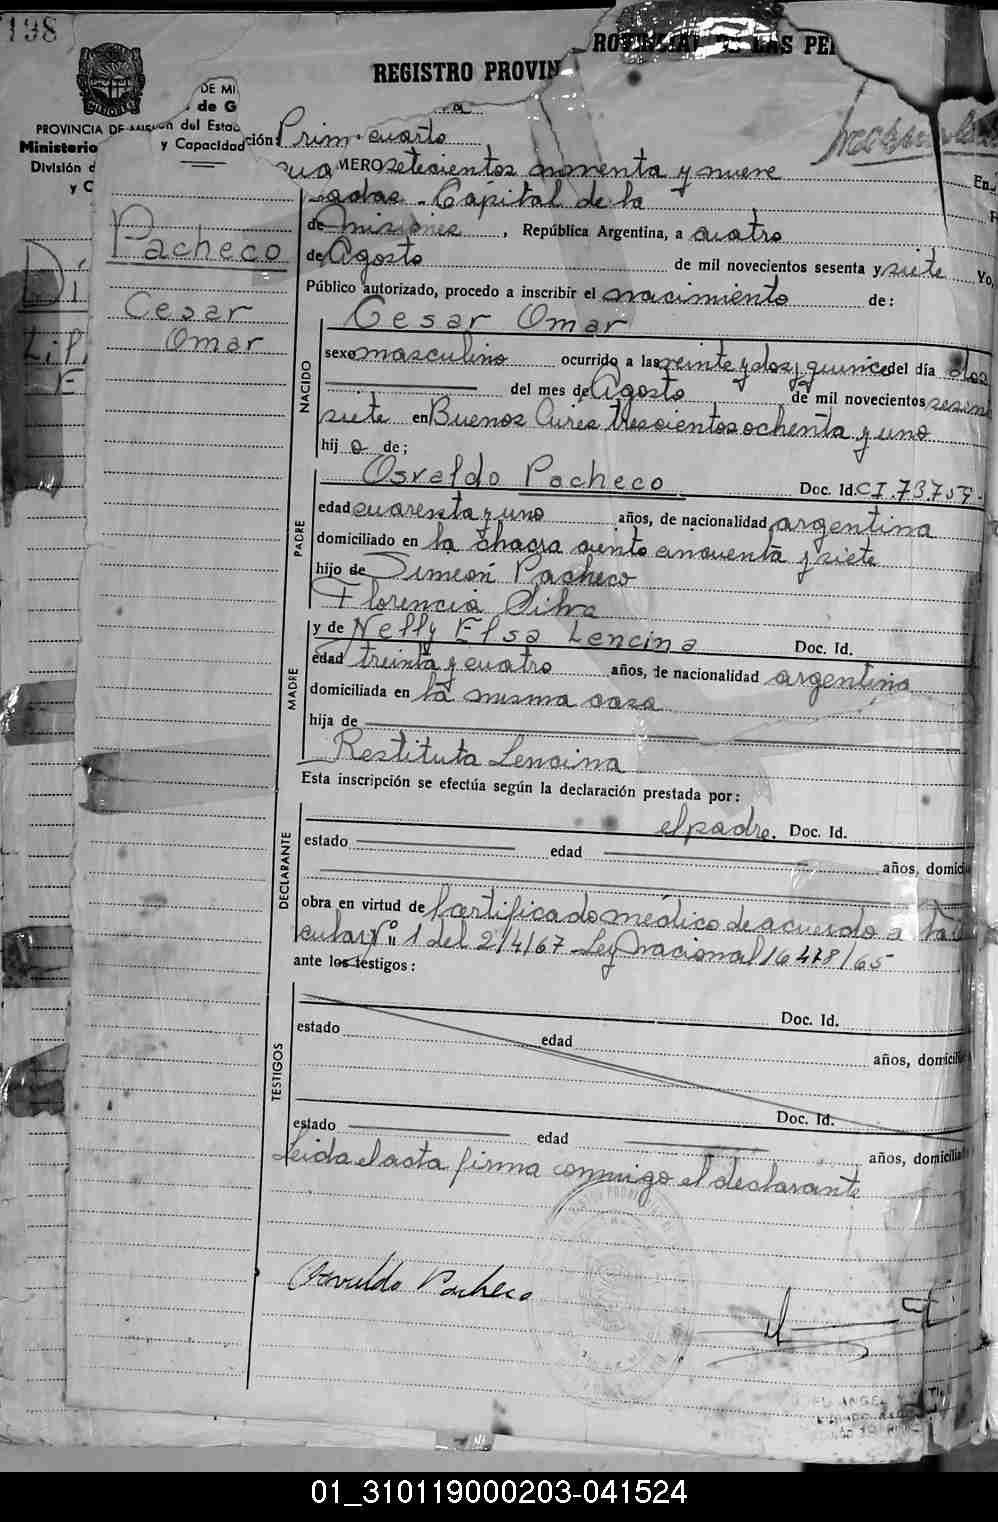 198
REGISTRO PROVIN
LAS PE
DE MI
de G
PROVINCIA DE
del Estado
Ministerio
y Capacidad
ción: Prim. cuarto
División d
y C
MERO setecientos noventa y nueve
En
Capital de la
de Misiones, República Argentina, a cuatro
de Agosto de mil novecientos sesenta y siete Yo,
Público autorizado, procedo a inscribir el nacimiento de:
Pacheco
Cesar
Omar
Cesar Omar
NACIDO
sexo masculino ocurrido a las veinte y dos y quince del día dos
del mes de Agosto de mil novecientos sesen
siete en Buenos Aires trescientos ochenta y uno
hijo de;
PADRE
Osvaldo Pacheco Doc. Id. CI.
edad cuarenta y uno años, de nacionalidad argentina
domiciliado en la chacra ciento cincuenta y siete
hijo de Simeón Pacheco
Florencia Silva
MADRE
y de Nelly Elsa Lencina Doc. Id.
edad treinta y cuatro años, de nacionalidad argentina
domiciliada en la misma casa
hija de
Restituta Lencina
Esta inscripción se efectúa según la declaración prestada por:
DECLARANTE
el padre. Doc. Id.
estado edad años, domicili
obra en virtud de certificado médico de acuerdo a la
cular Nº 1 del 2/4/67 Ley Nacional 16478/65
ante los testigos:
TESTIGOS
Doc. Id.
estado edad años, domicili
Doc. Id.
estado edad años, domicilia
Leida el acta firma conmigo el declarante
Osvaldo Pacheco
ANGEL
01_310119000203-041524